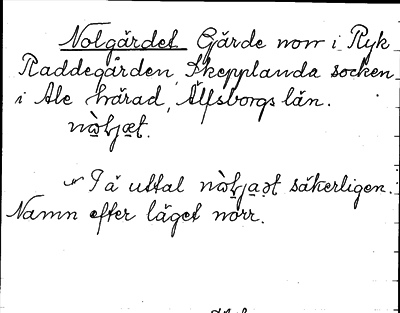 Nolgärdet Gärde norr i Ryk
Raddegården, Skepplanda socken
i Ale härad, Älfsborgs län.
I ä uttal säkerligen.
Namn efter läget norr.